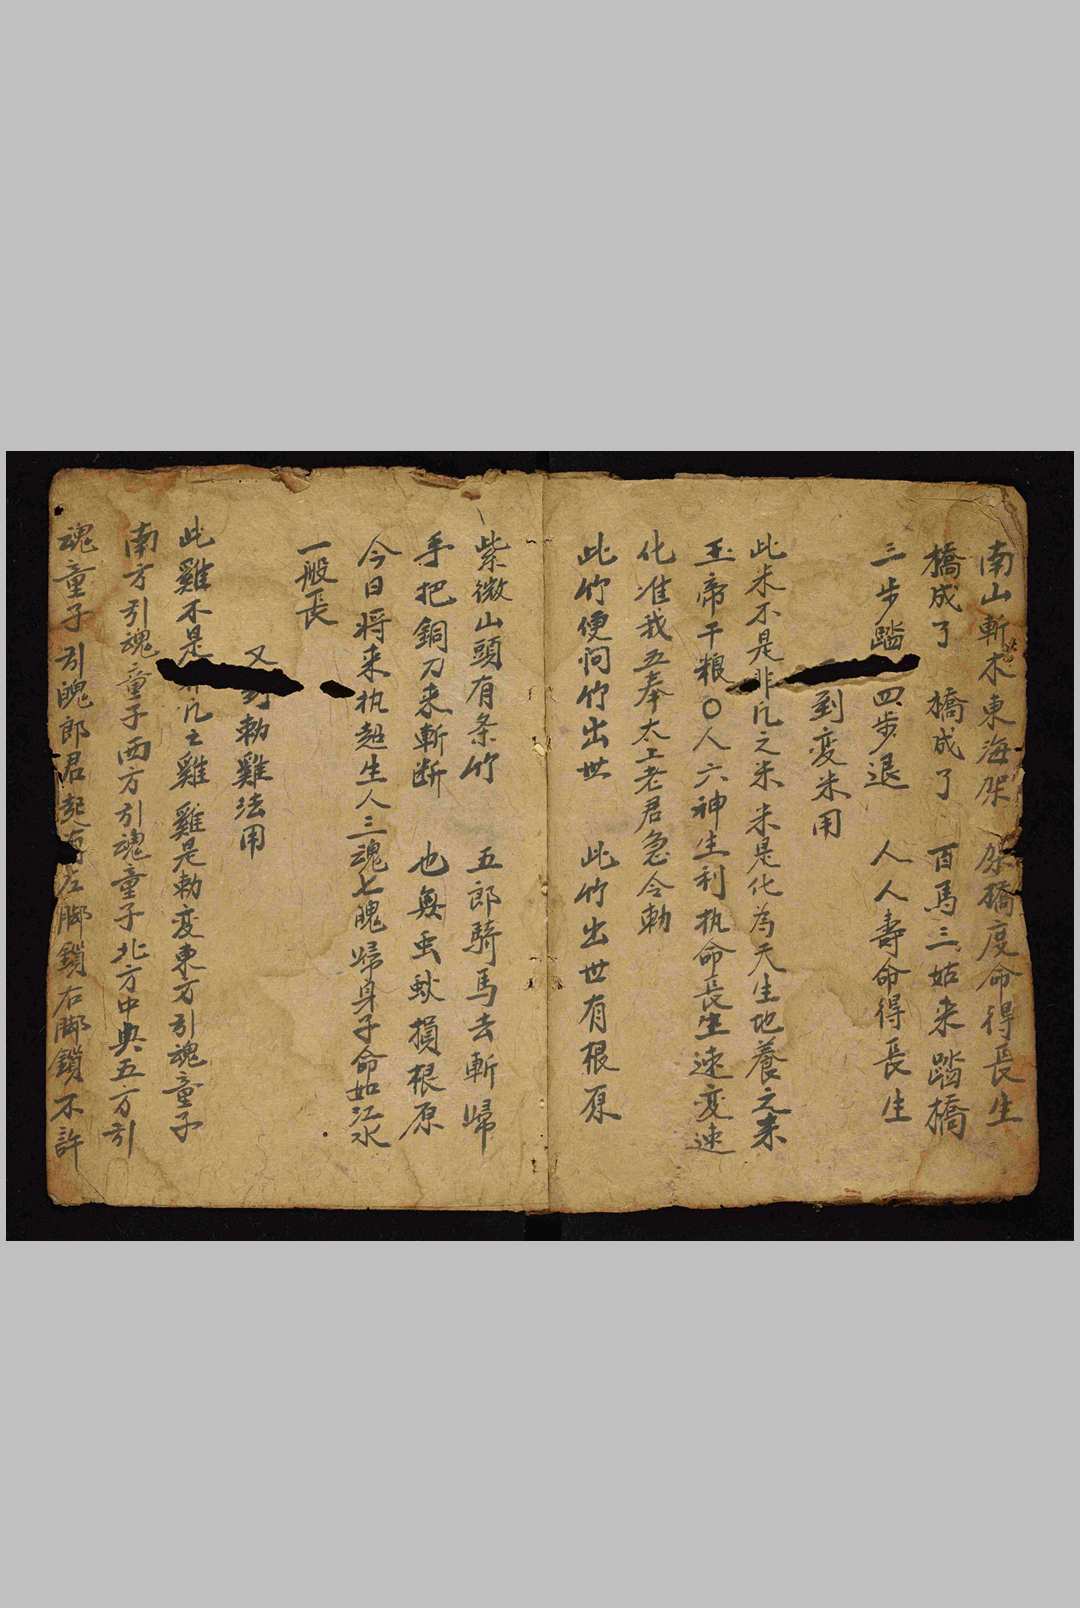 南山斬木東海架 架橋度命得長生
橋成了 橋成了 百馬三姑来踏橋
三步踏 四步退 人人壽命得長生
到变米用
此米不是非凡之米米是化為天生地養之来
玉帝干粮〇人六神生利执命長生速变速
化准我五奉太上老君急令勅
此竹便问竹出世 此竹出世有根原
紫微山頭有条竹 五郎騎馬去斬歸
手把銅刀来斬断 也無虫蚁損根原
今日将来执超生人三魂七魄歸身子命如江水
一般長
又到勅雞法用
此雞不是非凡之雞雞是勅变東方引魂童子
南方引魂童子西方引魂童子北方中央五方引
魂童子引魄郎君起 左脚鎖右脚鎖不許